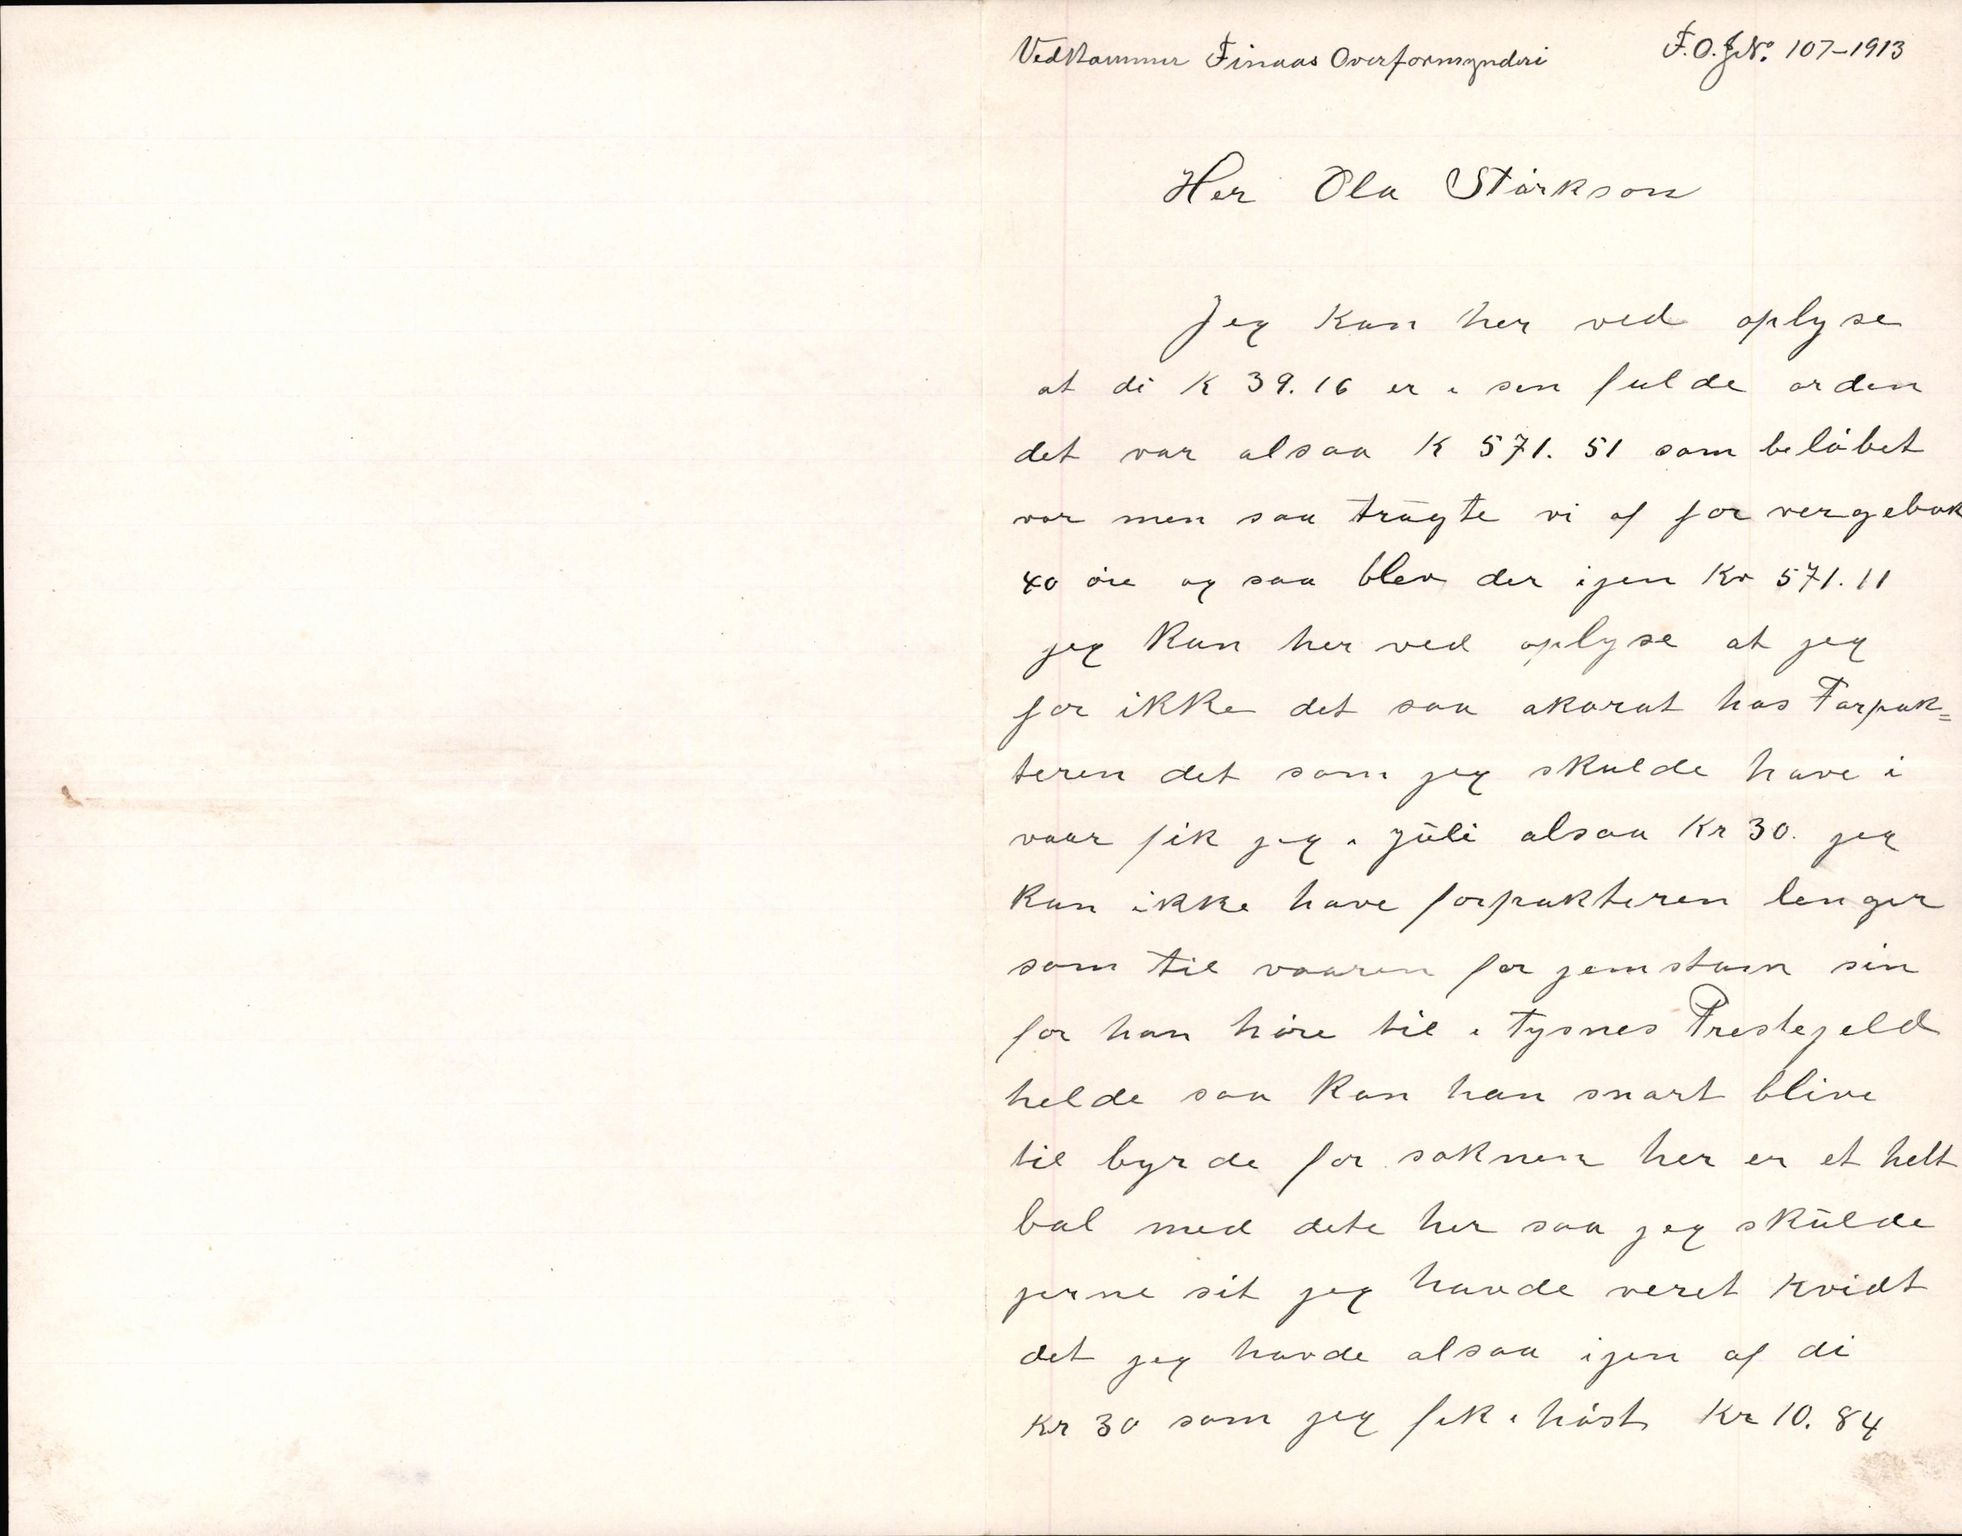 Vedkommer Finaas Overformynderi F.O.J.No. 107-1913
Her Ola Størkson
Jeg kan her ved oplyse
at di K 39.16 er i sin fulde orden
det var alsaa K 571.51 som beløbet
var men saa trægte vi af for vergebok
40 øre og saa blev der igen Kr 571.11
jeg kan her ved oplyse at jeg
for ikke det saa akorat hos Forpak=
teren det som jeg skulde have i
vaar fik jeg i juli alsaa Kr 30. jeg
kan ikke have forpakteren lenger
som til vaaren for jemstavn sin
for han høre til i Tysnes Prestejeld
helde saa kan han snart blive
til byrde for soknen her er et helt
bal med dete her saa jeg skulde
jerne sit jeg havde veret kvidt
det jeg havde alsaa igen af di
Kr 30 som jeg fik i høst Kr 10.84